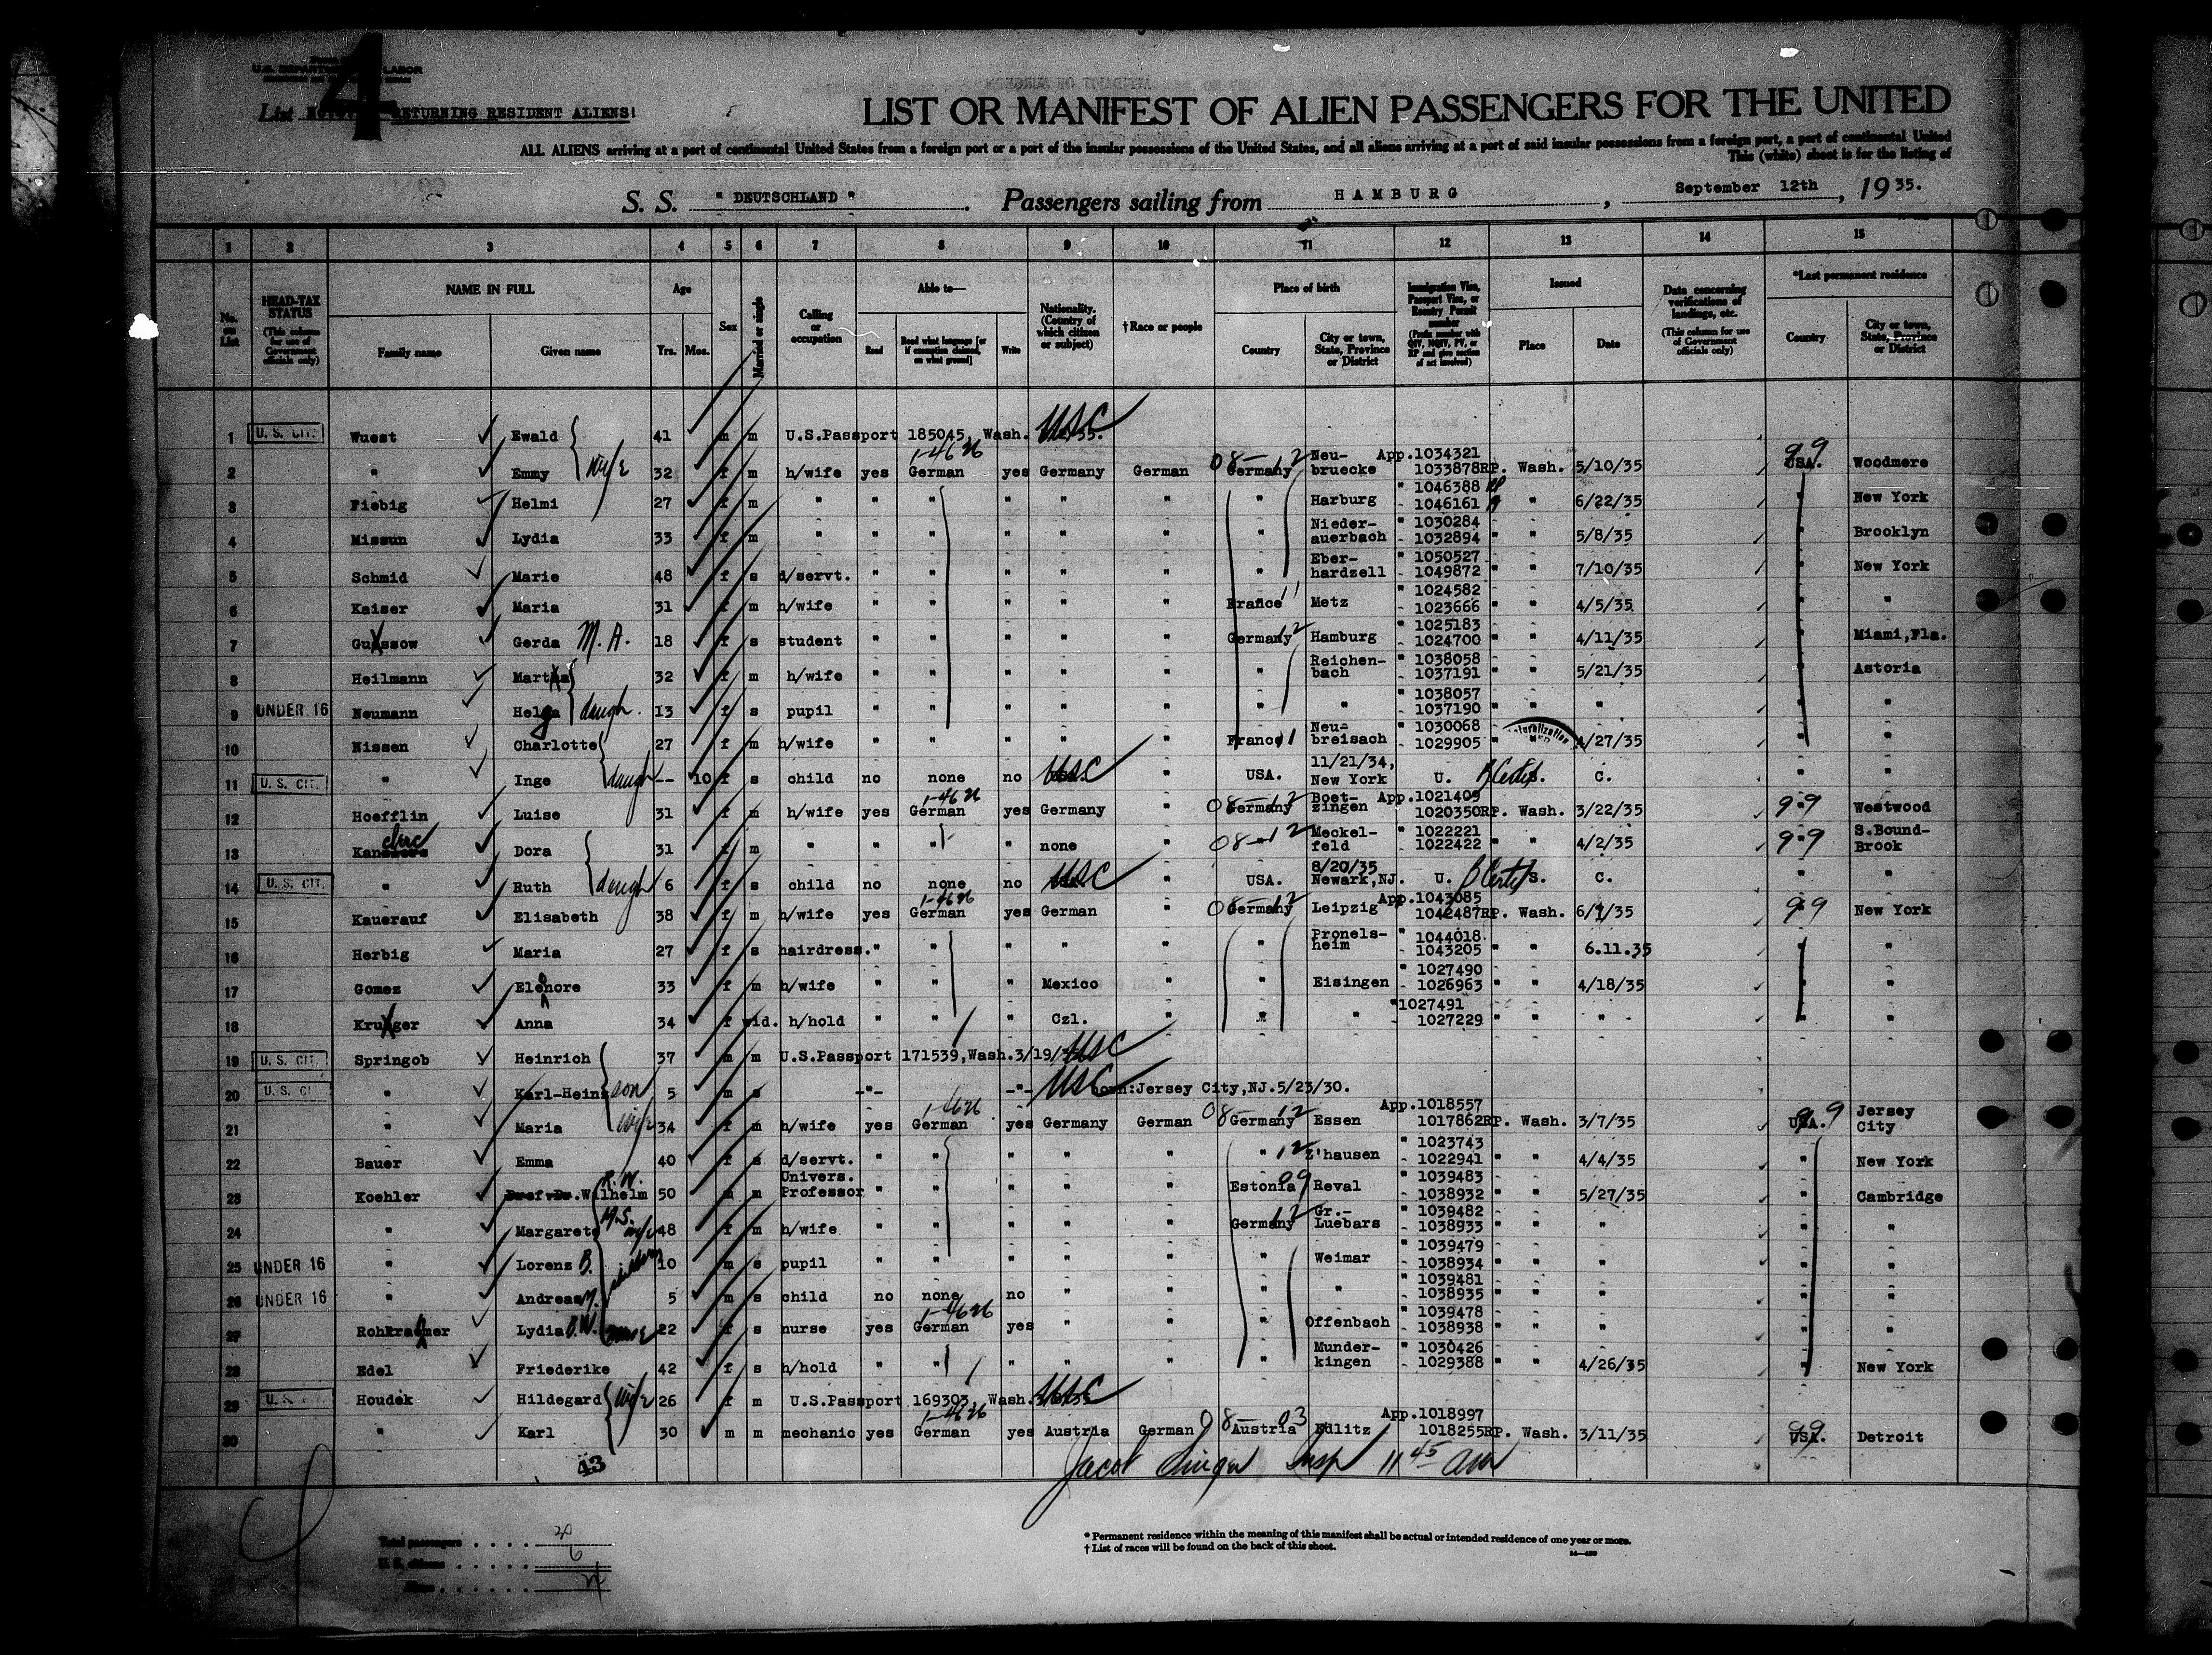 4
U.S. DEPARTMENT LABOR
List RETURNING RESIDENT ALIENS!
LIST OR MANIFEST OF ALIEN PASSENGERS FOR THE UNITED
ALL ALIENS arriving at a port of continental United States from a foreign port or a port of the insular possessions of the United States, and all aliens arriving at a port of said insular possessions from a foreign port, a port of continental United
This (white) sheet is for the listing of
S. S. " DEUTSCHLAND ". Passengers sailing from HAMBURG, September 12th, 1935.
1 2 3 4 5 6 7 8 9 10 11 12 13 14 15
No. on List
HEAD-TAX STATUS (This column for use of Government officials only)
NAME IN FULL Family name Given name
Age Yrs. Mos.
Sex
Married or single
Calling or occupation
Able to— Read Read what language [or if exemption claimed, on what ground] Write
Nationality. (Country of which citizen or subject)
†Race or people
Place of birth Country City or town, State, Province or District
Immigration Visa, Passport Visa, or Reentry Permit number (Prefix number with QIV, NQIV, PV, or RP and give section of act involved)
Issued Place Date
Data concerning verifications of landings, etc. (This column for use of Government officials only)
*Last permanent residence Country City or town, State, Province or District
1 U. S. CIT. Wuest Ewald 41 m m U.S.Passport 185045, Wash. USC
2 " Emmy wife 32 f m h/wife yes German 1-4626 yes Germany German 08-12 Germany Neu-bruecke App.1034321 1033878RP. Wash. 5/10/35 99 USA. Woodmere
3 Fiebig Helmi 27 f m " " " " " " " Harburg " 1046388 RP - 1046161 " " 6/22/35 " New York
4 Missun Lydia 33 f m " " " " " " " Nieder-auerbach " 1030284 - 1032894 " " 5/8/35 " Brooklyn
5 Schmid Marie 48 f s d/servt. " " " " " " Eber-hardzell " 1050527 - 1049872 " " 7/10/35 " New York
6 Kaiser Maria 31 f m h/wife " " " " " France Metz " 1024582 - 1023666 " " 4/5/35 " "
7 Gussow Gerda M. A. 18 f s student " " " " " Germany 12 Hamburg " 1025183 - 1024700 " " 4/11/35 " Miami,Fla.
8 Heilmann Martha 32 f m h/wife " " " " " " Reichen-bach " 1038058 - 1037191 " " 5/21/35 " Astoria
9 UNDER 16 Neumann Helga daugh. 13 f s pupil " " " " " " " " 1038057 - 1037190 " " " " "
10 Nissen Charlotte 27 f m h/wife " " " " " France Neu-breisach " 1030068 - 1029905 " " 4/27/35 " "
11 U. S. CIT. " Inge daugh -- 10 f s child no none no USC " USA. 11/21/34, New York U. S. C. B Certif. " "
12 Hoefflin Luise 31 f m h/wife yes German 1-4626 yes Germany " 08-12 Germany Boet-zingen App.1021409 1020350RP. Wash. 3/22/35 99 Westwood
13 Dora 31 f m " " " " none " 08-12 Meckel-feld " 1022221 - 1022422 " " 4/2/35 99 S.Bound-Brook
14 U. S. CIT. " Ruth daugh 6 f s child no none no USC " USA. 8/20/35 Newark,NJ. U. S. C. B Certif. " "
15 Kauerauf Elisabeth 38 f m h/wife yes German 1-4626 yes German " 08-12 Germany Leipzig App.1043085 1042487RP. Wash. 35 99 New York
16 Herbig Maria 27 f s hairdress. " " " " " " Pronels-heim " 1044018 - 1043205 " " 6.11.35 " "
17 Gomez Elenore 33 f m h/wife " " " Mexico " " Eisingen " 1027490 - 1026963 " " 4/18/35 " "
18 Kruger Anna 34 f wid. h/hold " " " Czl. " " " "1027491 1027229 " " " " "
19 U. S. CIT. Springob Heinrich 37 m m U.S.Passport 171539,Wash.3/19/35 USC
20 " Karl-Heinz son 5 m s -"- -"- USC born:Jersey City,NJ.5/23/30.
21 " Maria wife 34 f m h/wife yes German 1-4626 yes Germany German 08-12 Germany Essen App.1018557 1017862RP. Wash. 3/7/35 99 USA. Jersey City
22 Bauer Emma 40 f s d/servt. " " " " " " 12 Z'hausen " 1023743 - 1022941 " " 4/4/35 " New York
23 Koehler Prof.Dr.Wilhelm R. W. 50 m m Univers. Professor " " " " " Estonia 09 Reval " 1039483 - 1038932 " " 5/27/35 " Cambridge
24 " Margarete M.S. wife 48 f m h/wife " " " " " Germany 12 Gr.-Luebars " 1039482 - 1038933 " " " " "
25 UNDER 16 " Lorenz B. children 10 m s pupil " " " " " " Weimar " 1039479 - 1038934 " " " " "
26 UNDER 16 " Andreas 5 m s child no none no " " " " " 1039481 - 1038935 " " " " "
27 Lydia nurse 22 f s nurse yes German 1-4626 yes " " " Offenbach " 1039478 - 1038938 " " " " "
28 Edel Friederike 42 f s h/hold " " " " " " Munder-kingen " 1030426 - 1029388 " " 4/26/35 " New York
29 Houdek Hildegard wife 26 f m U.S.Passport 169303, Wash. USC
30 " Karl 30 m m mechanic yes German 1-4626 yes Austria German 08-03 Austria Edlitz App.1018997 1018255RP. Wash. 3/11/35 99 USA. Detroit
43
Jacob Singer Insp 11 45 am
Total passengers
U. S. citizens 6
Aliens
* Permanent residence within the meaning of this manifest shall be actual or intended residence of one year or more.
† List of races will be found on the back of this sheet.